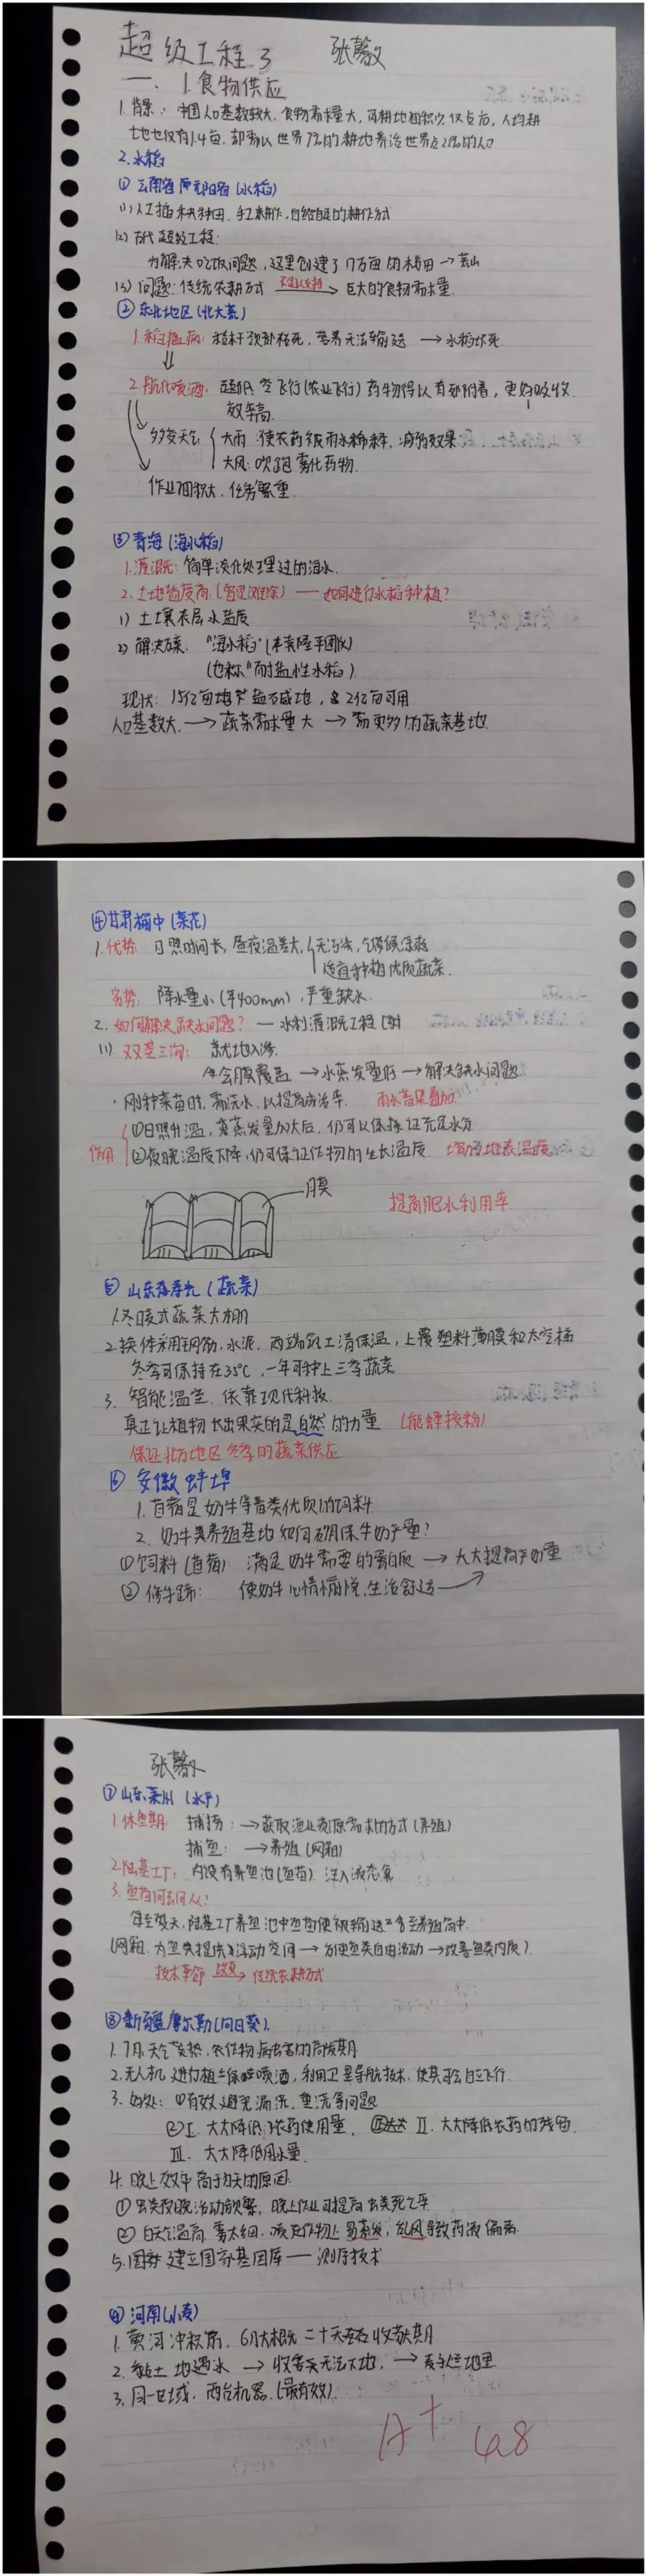 超级工程 3 张馨
一、1.食物供应
1.背景:中国人口基数较大,食物需求量大,可耕地面积少,仅占后,人均耕
地也仅有1.4亩,却需以世界7%的耕地养活世界占21%的人口
2.水稻
①云南省 元阳省(水稻)
(1)人工插秧种田,手工耕作,自给自足的耕作方式
(2)古代超级工程:
为解决吃饭问题,这里创建了17万亩的梯田→荒山
(3)问题:传统农耕方式 不足以支持→ 巨大的食物需求量
②东北地区(北大荒)
1.稻瘟病:稻秆颈部枯死,营养无法输送→水稻坏死
2.航化喷洒:超低空飞行(农业飞行)药物得以有效附着,更好吸收
效率高
多变天气 大雨:使农药被雨水稀释,减弱效果
大风:吹跑雾化药物
作业面积大,任务繁重
③青海(海水稻)
1.灌溉:简单淡化处理过的海水
2.土地盐度高(曾是滩涂)——如何进行水稻种植?
1)土壤表层水盐度
2)解决方案:"海水稻"(袁隆平团队)
(也称"耐盐性水稻)
现状:15亿亩地为盐碱地,2亿亩可用
人口基数大→蔬菜需求量大→需更多的蔬菜基地
④甘肃榆中(菜花)
1.优势:日照时间长,昼夜温差大,无污染,气候凉爽
适宜种植优质蔬菜
劣势:降水量小(年400mm),严重缺水
2.如何解决缺水问题?—水利灌溉工程
(1)双垄三沟:就地入渗
全膜覆盖→水蒸发量低→解决缺水问题
·刚种菜苗时,需浇水,以提高成活率 雨水富集叠加
作用 ①日照升温,蒸发量加大后,仍可以保持证充足水分
②夜晚温度下降,仍可保证作物的生长温度 增加地表温度
膜 提高肥水利用率
⑤山东寿光(蔬菜)
1.冬暖式蔬菜大棚
2.墙体采用钢筋,水泥,两端砌土清保温,上覆塑料薄膜和太空棉
冬季可保持在35℃,一年可种上三季蔬菜
3.智能温室 依靠现代科技
真正让植物长出果实的是自然的力量(熊蜂授粉)
保证北方地区冬季的蔬菜供应
⑥安徽蚌埠
1.苜蓿是奶牛等畜类优质的饲料
2.奶牛养殖基地如何确保牛奶产量?
①饲料(苜蓿):满足奶牛需要的蛋白质→大大提高产奶量
②修牛蹄:使奶牛心情愉悦,生活舒适→
张馨
⑦山东莱州(水产)
1.休渔期 捕捞:→获取渔业资源需求的方式(养殖)
捕鱼:→养殖(网箱)
2.陆基工厂:内设有养鱼池(鱼苗),注入液态氧
3.鱼苗何去何从?
每至夏天,陆基工厂养鱼池中鱼苗便被输送至养殖箱中
(网箱:为鱼类提供游动空间→方便鱼类自由游动→改善鱼类肉质)
技术革命 改变→ 传统农耕方式
⑧新疆库尔勒(向日葵)
1.7月天气炎热,农作物病虫害的高发期
2.无人机进行植保喷洒,利用卫星导航技术,使其可以自主飞行
3.好处:①有效避免漏洗,重洗等问题
②Ⅰ.大大降低农药使用量 Ⅱ.大大降低农药的残留
Ⅲ.大大降低用水量
4.晚上效率高于白天的原因
①虫类夜晚活动频繁,晚上作业可提高虫类死亡率
②白天气温高,雾太细,喷在作物上易蒸发,乱风导致药液偏离
5.国家建立国家基因库——测序技术
⑨河南(小麦)
1.黄河冲积扇,6月大概二十天至收获期
2.黏土地遇水→收割机无法下地→麦子烂地里
3.同一区域,两台机器(最有效)
A+ 48